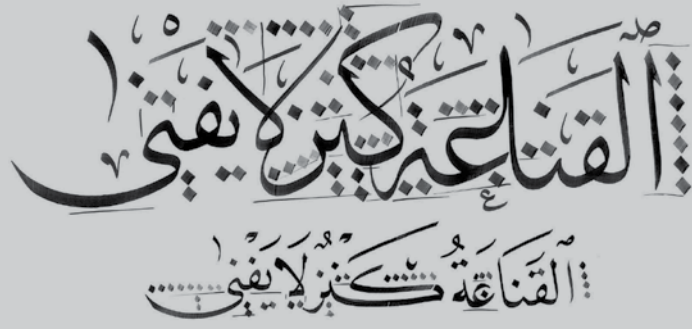 القناعة كنز لا يفنى
ٱلْقَنَاعَةُ كَنْزٌ لَا يَفْنَى